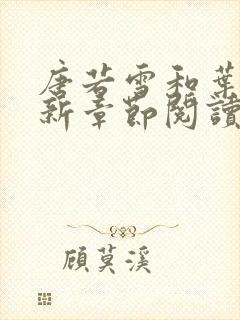 唐若雪和葉
新章節閱讀
顧莫溪